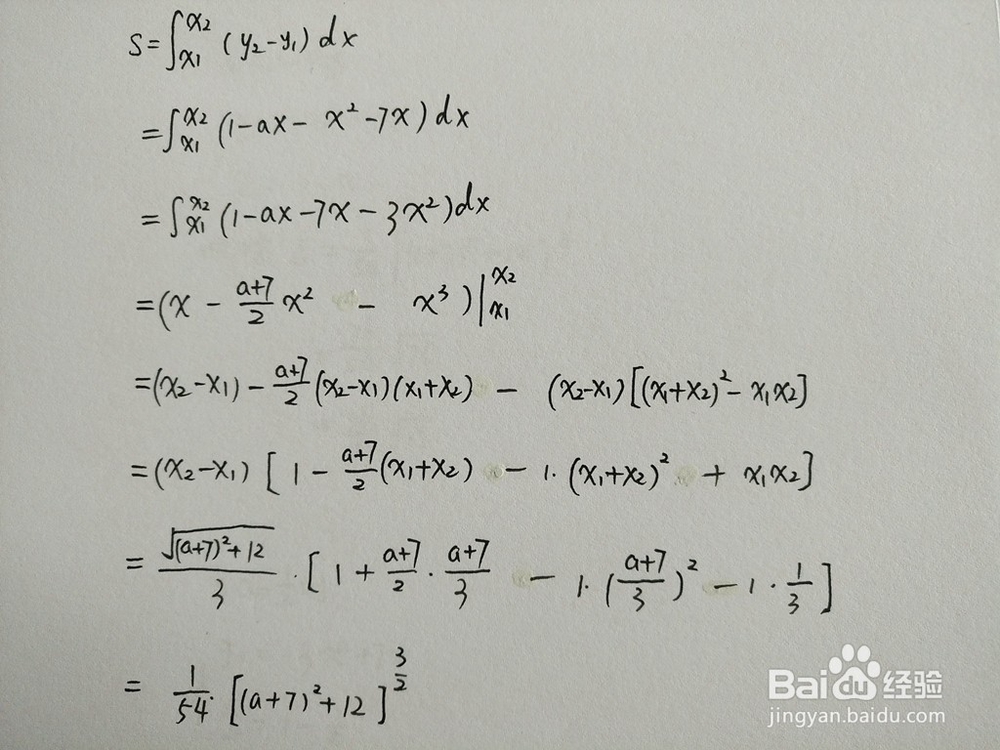 S=∫_{x1}^{x2} (y₂-y₁) dx
=∫_{x1}^{x2} (1-ax- x²-7x) dx
=∫_{x1}^{x2} (1-ax-7x-3x²) dx
=(x - \frac{a+7}{2} x² - x³)|_{x1}^{x2}
=(x₂-x₁) - \frac{a+7}{2} (x₂-x₁)(x₁+x₂) - (x₂-x₁)[(x₁+x₂)²- x₁x₂]
=(x₂-x₁) [1 - \frac{a+7}{2} (x₁+x₂) - 1·(x₁+x₂)² + x₁x₂]
= \frac{\sqrt{(a+7)²+12}}{3} · [1 + \frac{a+7}{2} · \frac{a+7}{3} - 1·(\frac{a+7}{3})² - 1·\frac{1}{3}]
= \frac{1}{54} [(a+7)²+12]^{\frac{3}{2}}
Baidu 经验
jingyan.baidu.com